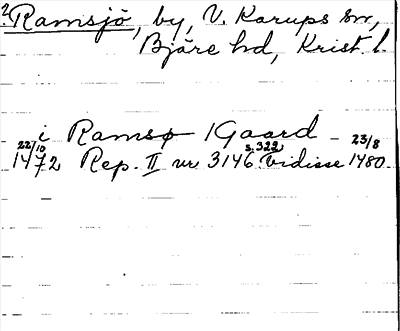 2. Ramsjö, by, V. Karups sn,
Bjäre hd, Krist. l.
i Ramsø /Gaard -
22/10 1472 Rep. II nr 3146 s. 322 Vidisse 23/8 1480.